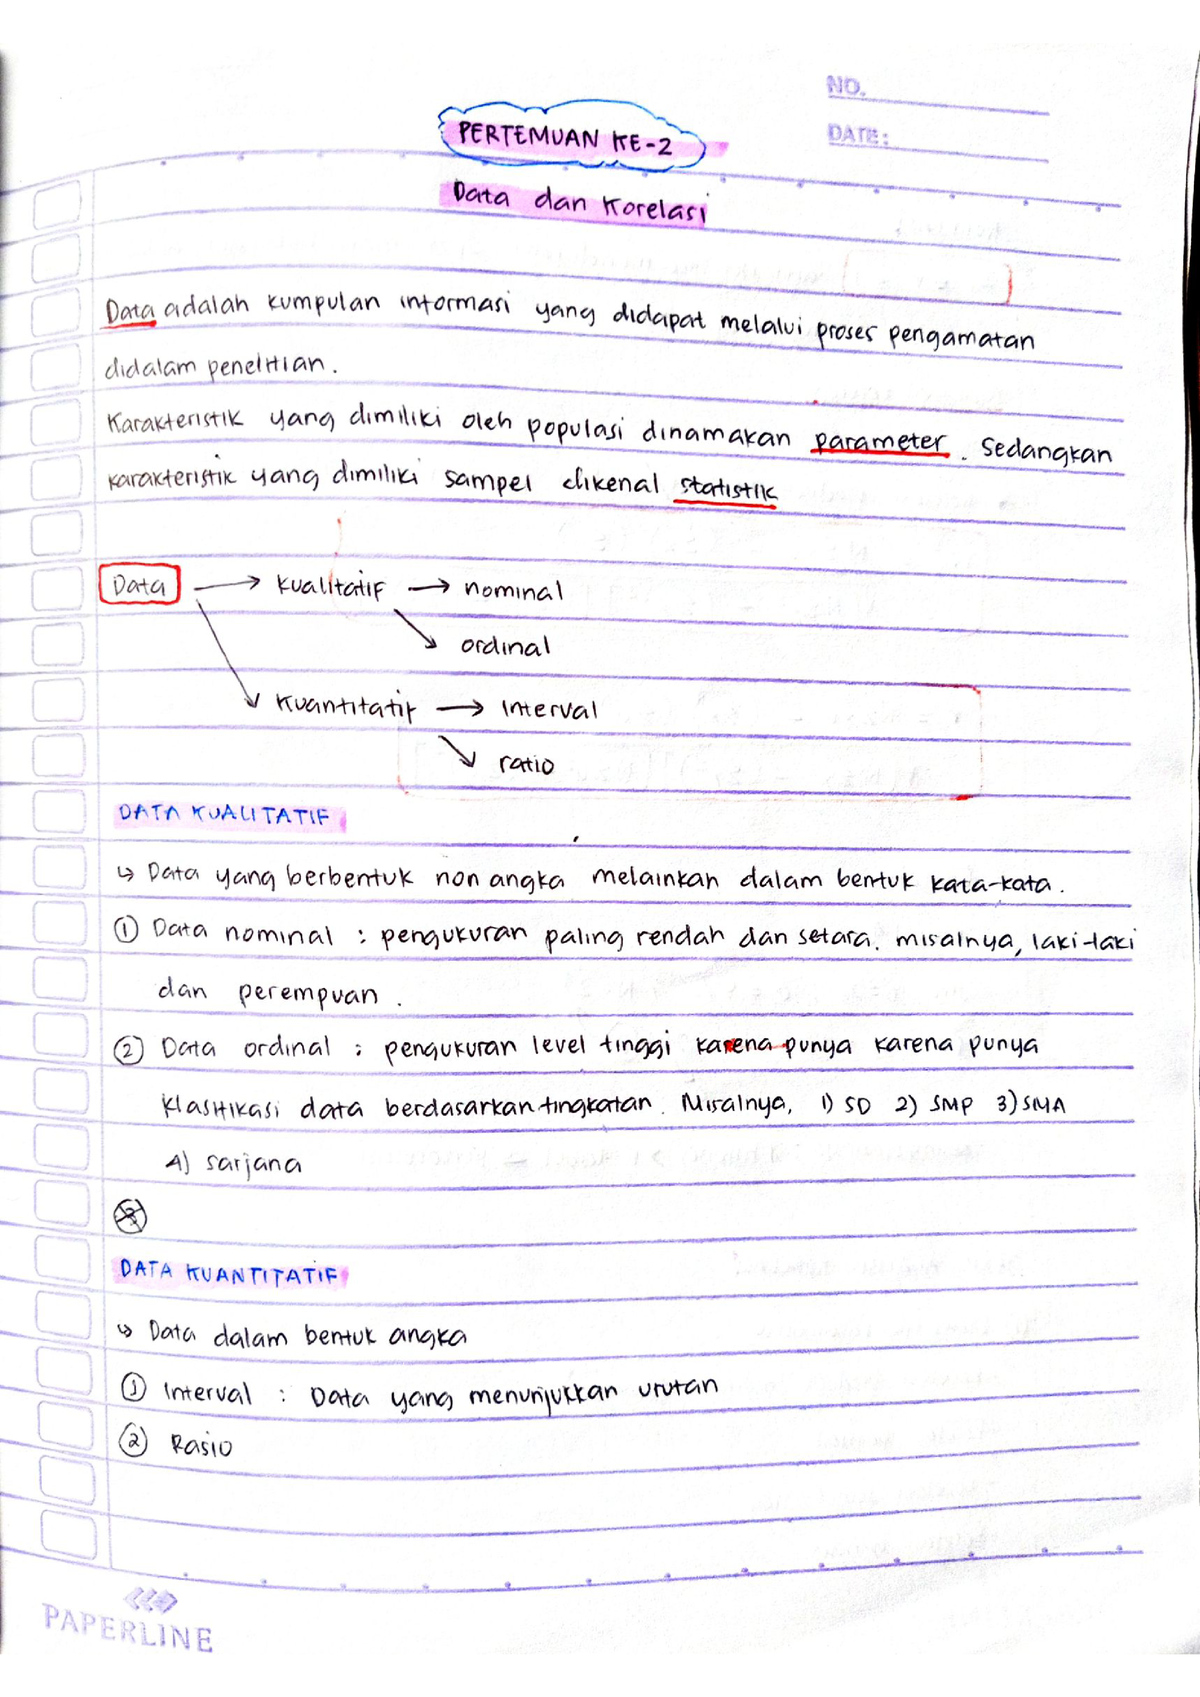 NO.
DATE:
PERTEMUAN KE-2
Data dan Korelasi
Data adalah kumpulan informasi yang didapat melalui proses pengamatan
didalam penelitian.
Karakteristik yang dimiliki oleh populasi dinamakan parameter. Sedangkan
karakteristik yang dimiliki sampel dikenal statistik
Data → kualitatif → nominal
ordinal
Kuantitatif → Interval
ratio
DATA KUALITATIF
↳ Data yang berbentuk non angka melainkan dalam bentuk kata-kata.
① Data nominal : pengukuran paling rendah dan setara. misalnya, laki-laki
dan perempuan.
② Data ordinal : pengukuran level tinggi karena punya karena punya
klasifikasi data berdasarkan tingkatan. Misalnya, 1) SD 2) SMP 3) SMA
4) sarjana
DATA KUANTITATIF
↳ Data dalam bentuk angka
① Interval : Data yang menunjukkan urutan
② Rasio
PAPERLINE